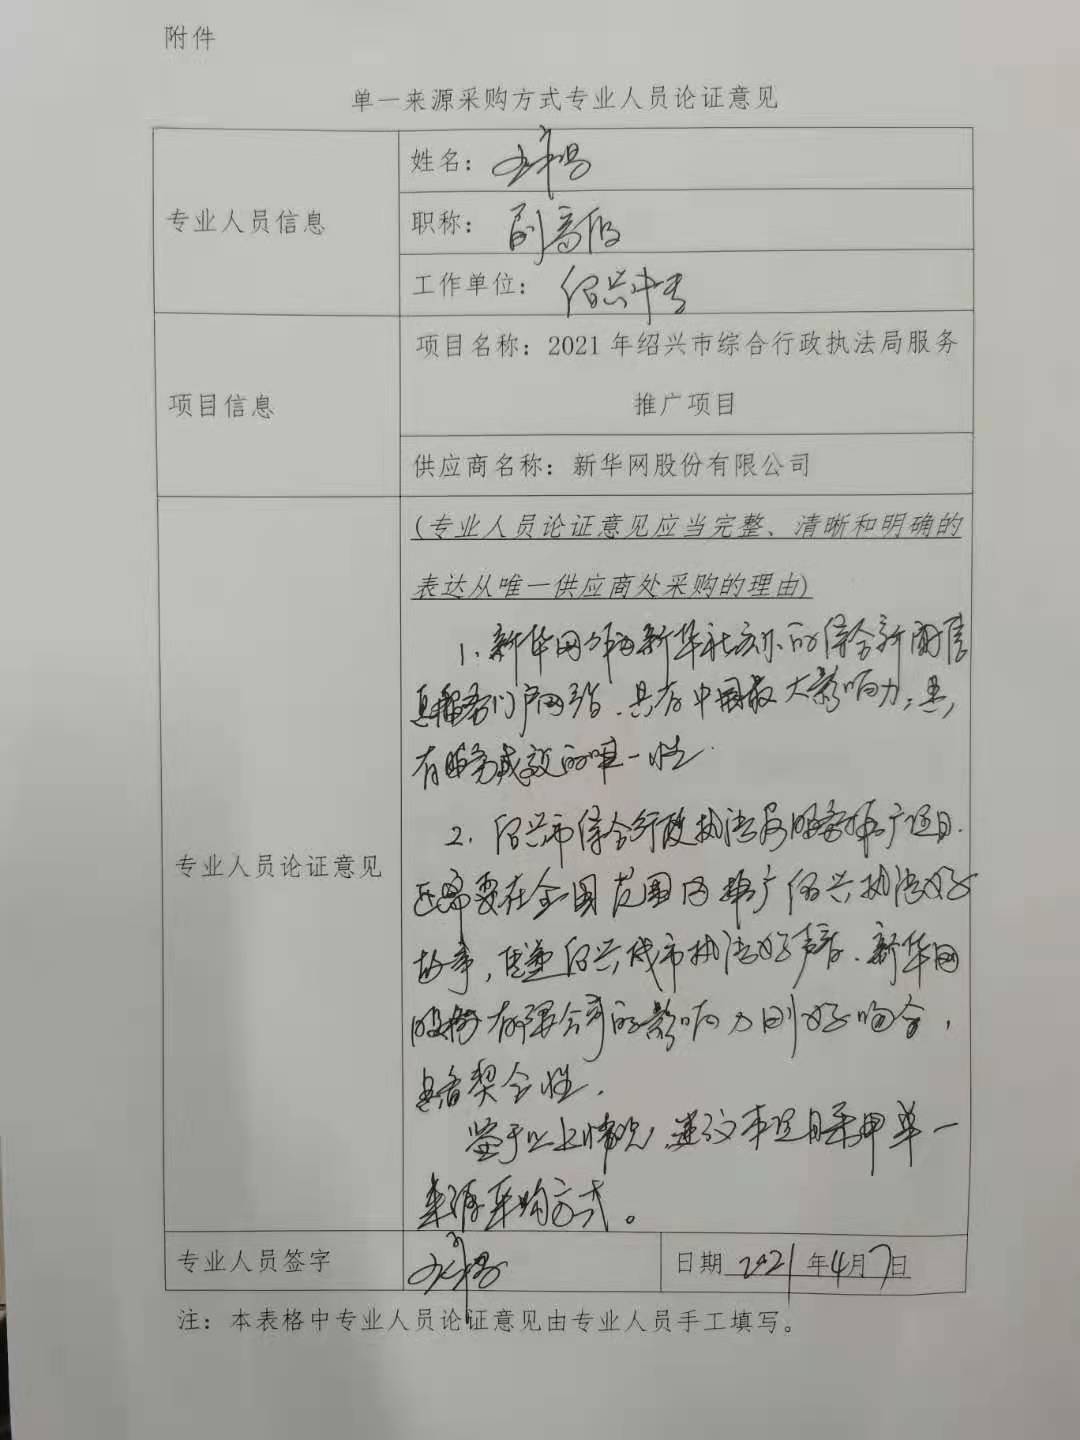 附件
单一来源采购方式专业人员论证意见
专业人员信息
姓名：
职称：副高级
工作单位：绍兴中专
项目信息
项目名称：2021年绍兴市综合行政执法局服务
推广项目
供应商名称：新华网股份有限公司
专业人员论证意见
(专业人员论证意见应当完整、清晰和明确的
表达从唯一供应商处采购的理由)
1、新华网作为新华社主办的综合新闻信
息服务门户网站，具有中国最大影响力，具
有服务成效的唯一性.
2、绍兴市综合行政执法局服务推广项目.
需要在全国范围内推广绍兴执法好
故事，传递绍兴城市执法好声音.新华网
股份有限公司的影响力刚好吻合，
具有契合性.
鉴于以上情况，建议本项目采用单一
来源采购方式。
专业人员签字
日期 2021年4月7日
注：本表格中专业人员论证意见由专业人员手工填写。